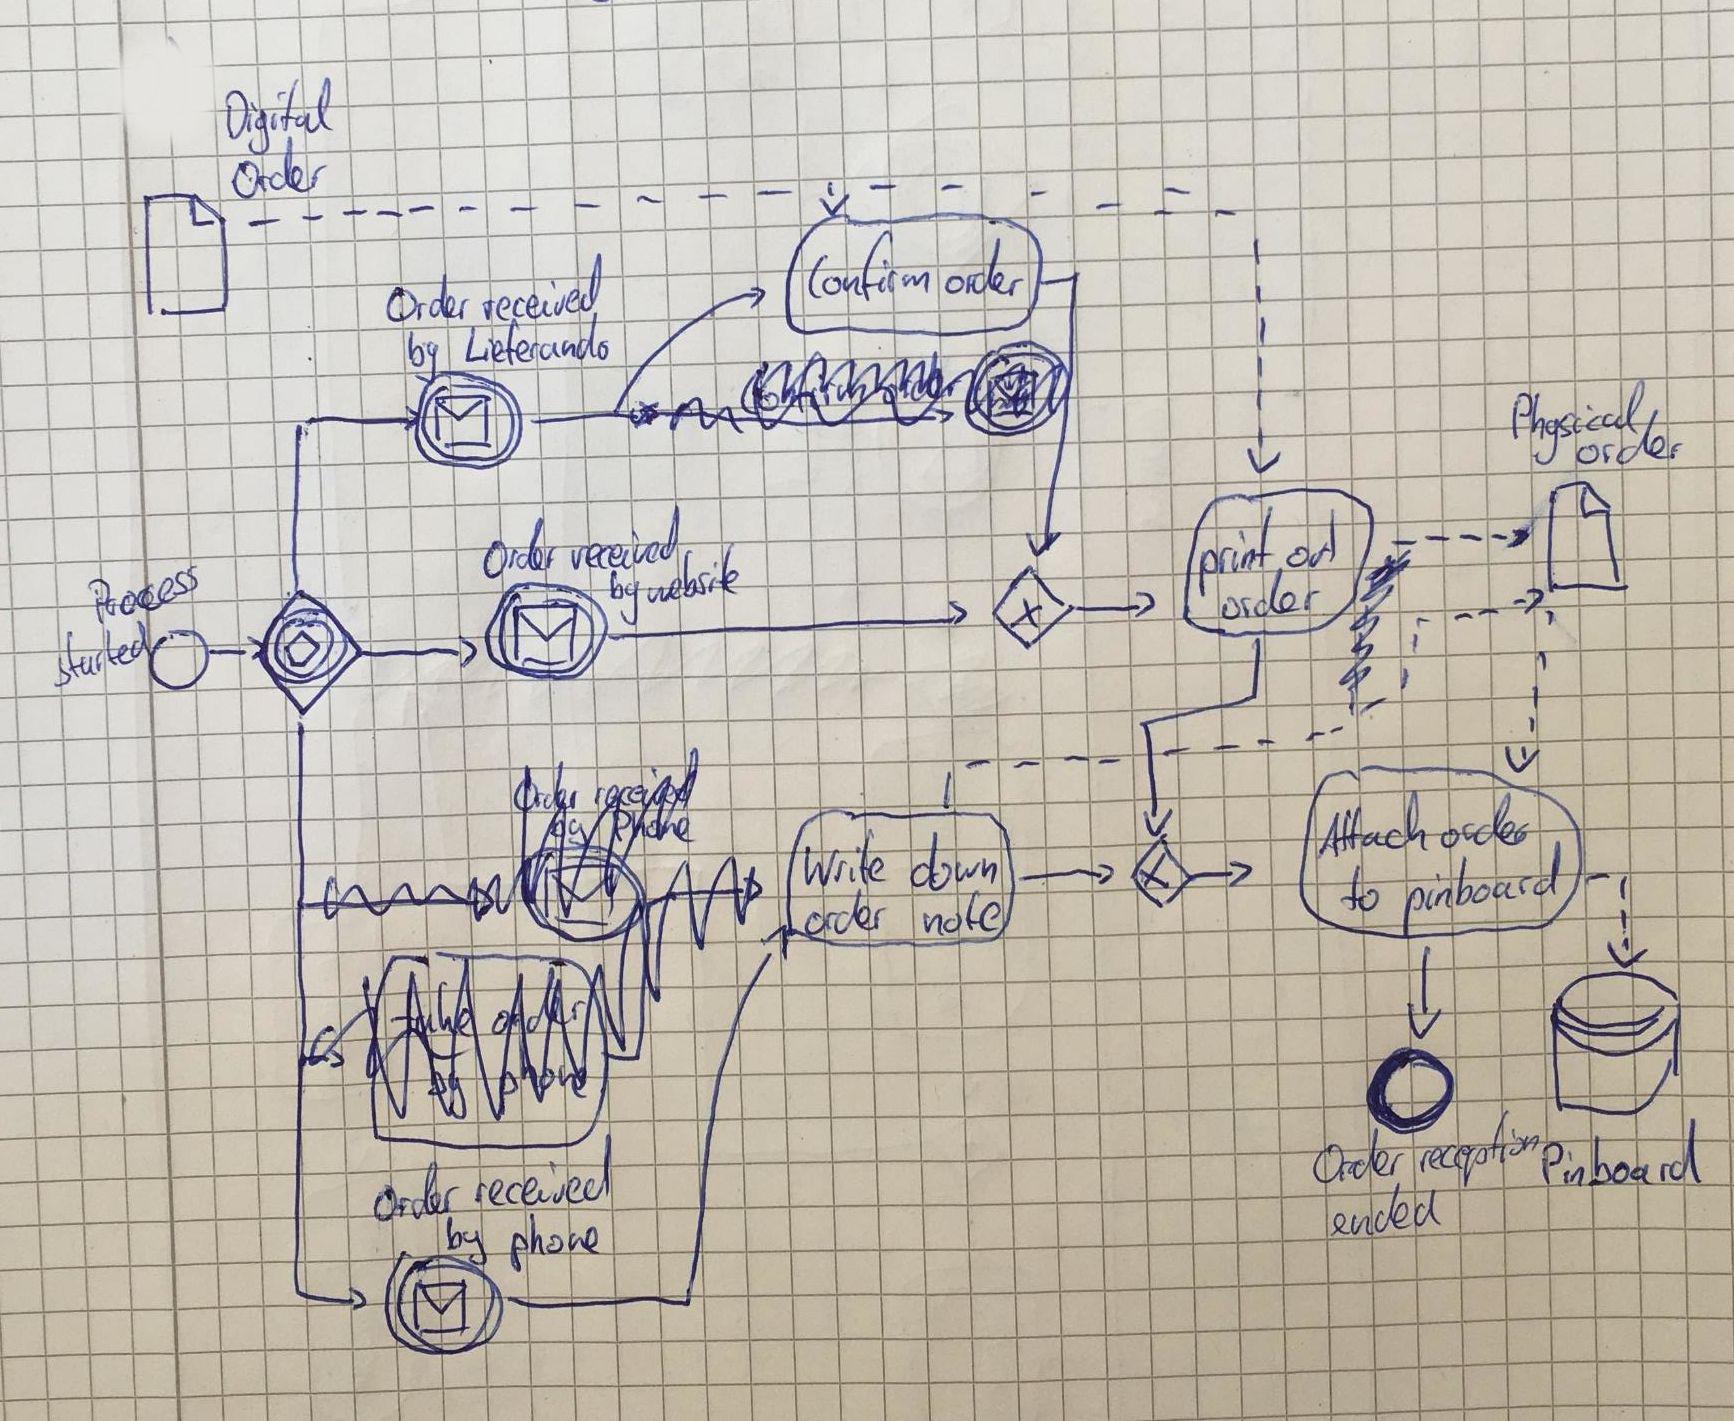 Digital
Order
Confirm order
Order received
by Lieferando
Physical
order
print out
order
Order received
by website
Process
started
Order received
by Phone
Write down
order note
Attach order
to pinboard
take order
by phone
Order received
by phone
Order reception
ended
Pinboard